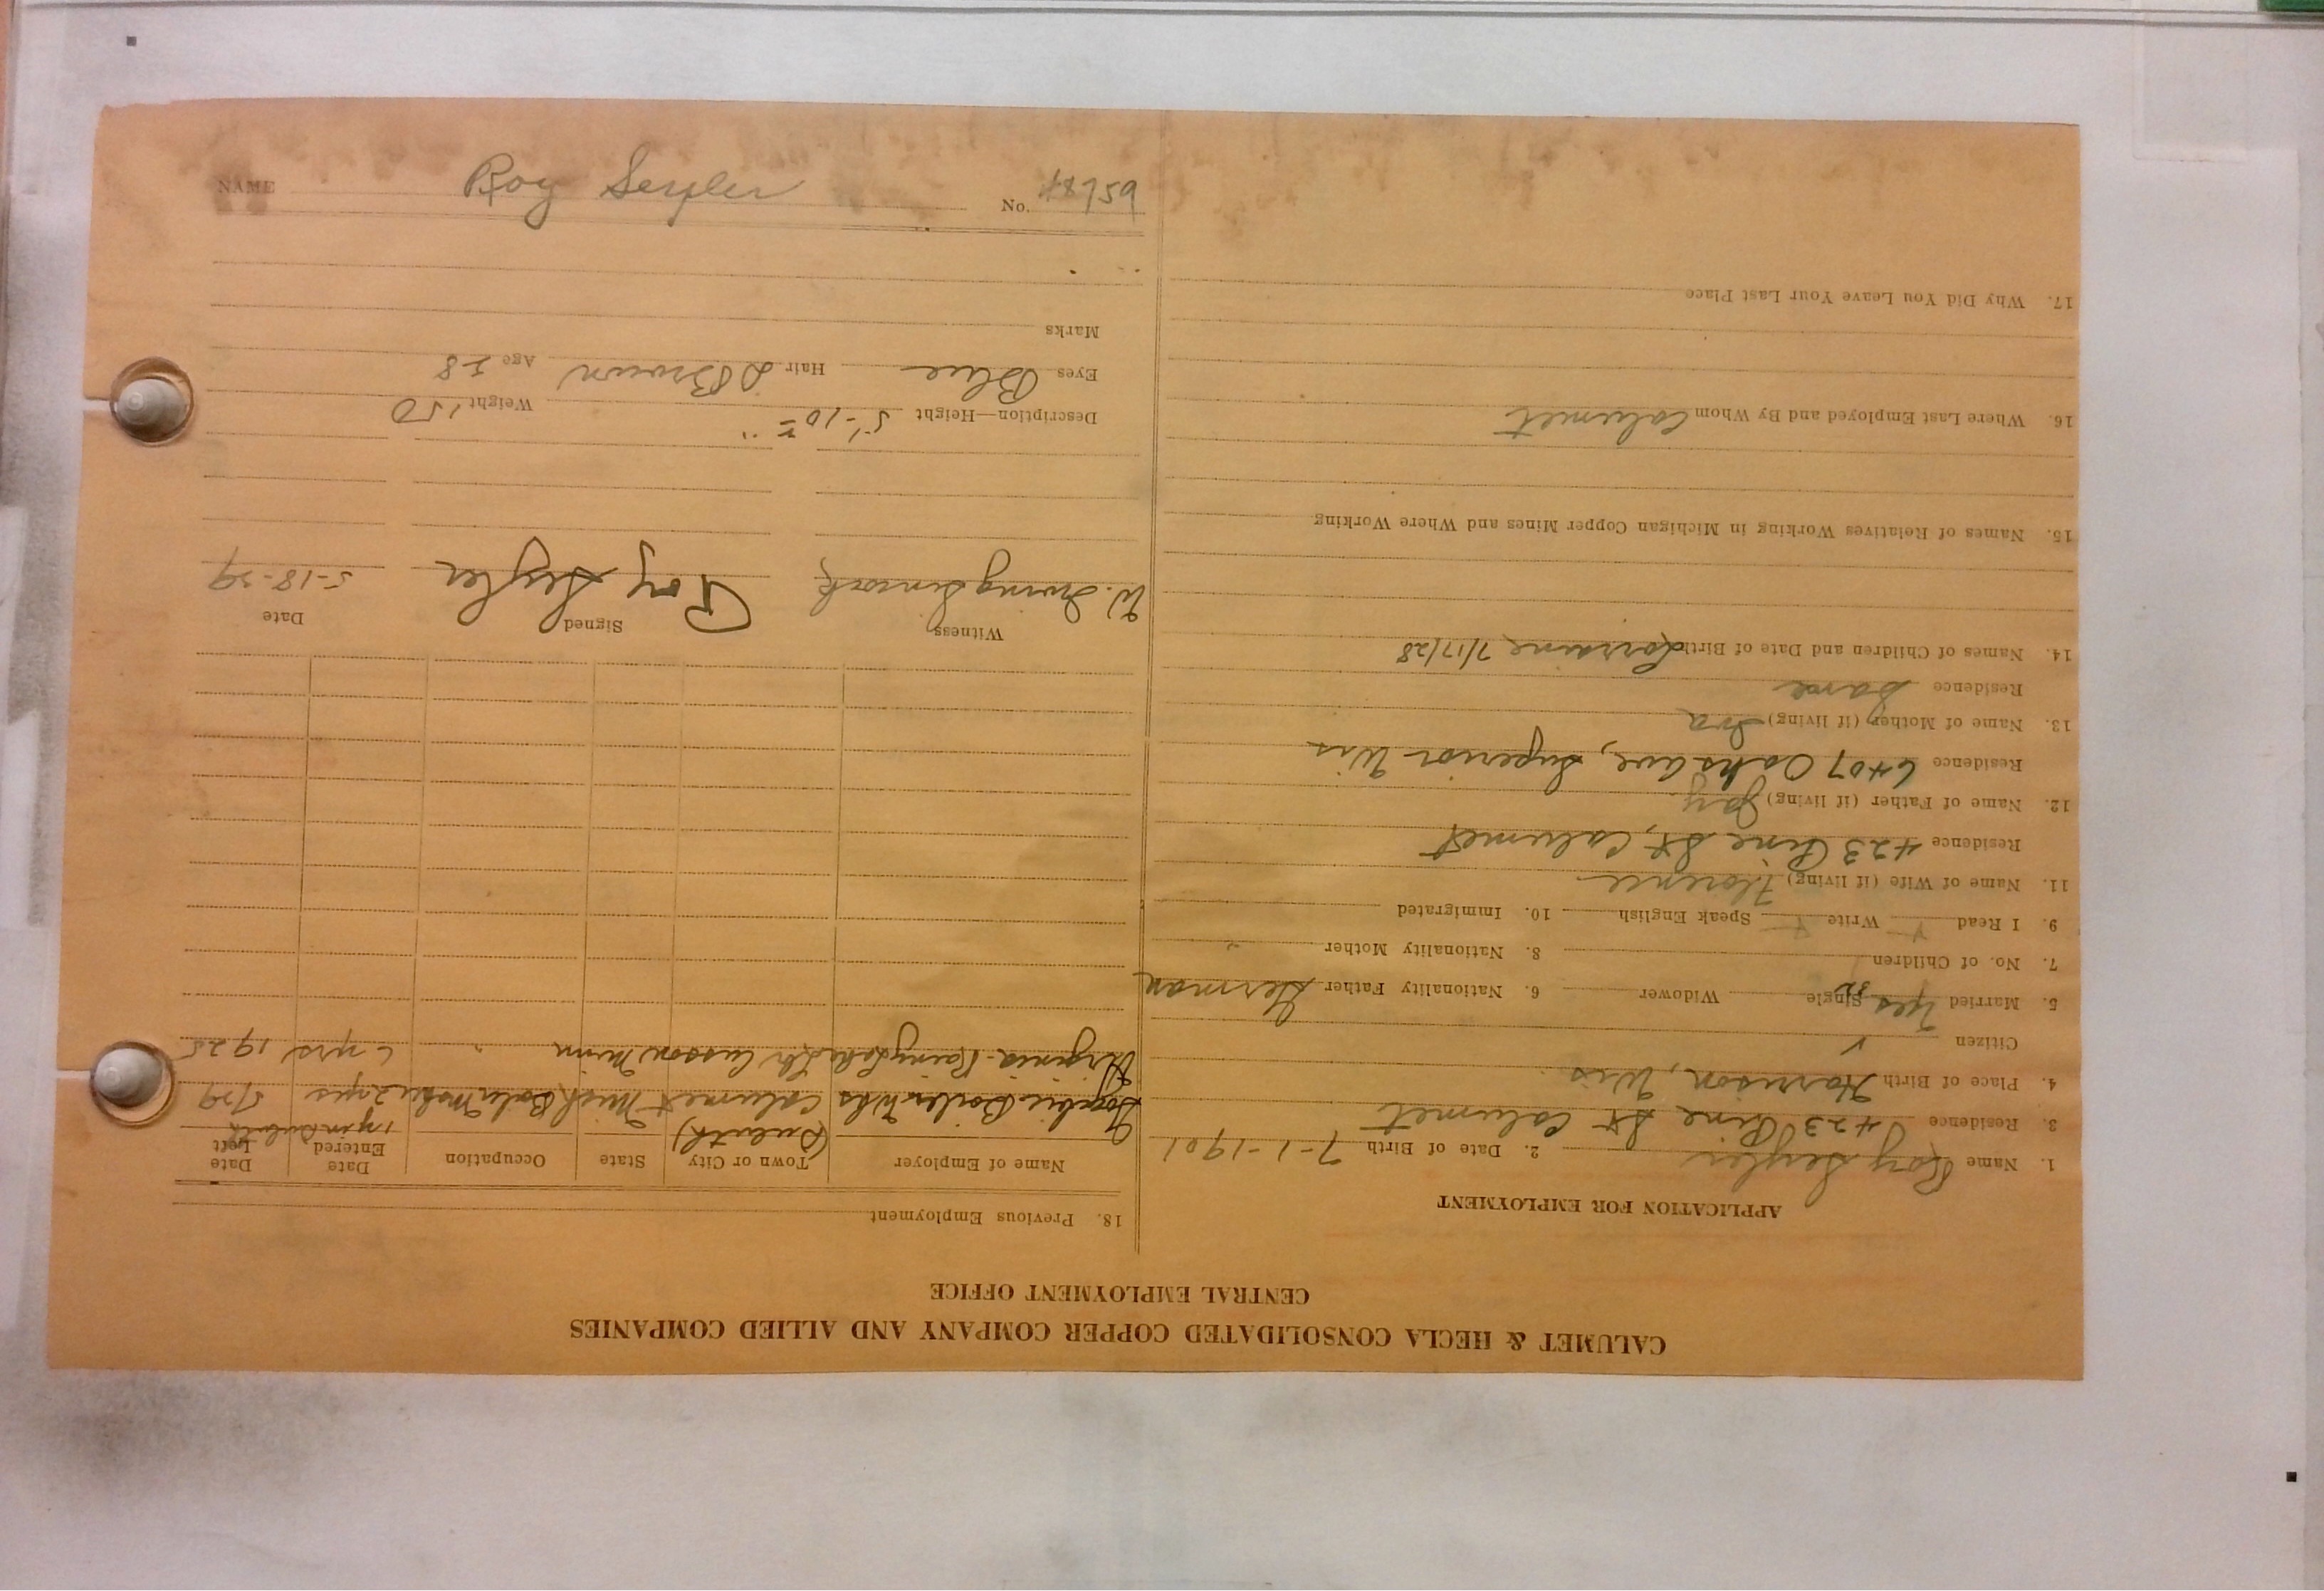 CALUMET & HECLA CONSOLIDATED COPPER COMPANY AND ALLIED COMPANIES
CENTRAL EMPLOYMENT OFFICE
APPLICATION FOR EMPLOYMENT
1. Name Roy Seyler 2. Date of Birth 7-1-1901
3. Residence 423 Pine St Calumet
4. Place of Birth Harrison, Wis
Citizen
5. Married Yes Single Widower 6. Nationality Father German
7. No. of Children 8. Nationality Mother "
9. I Read Write Speak English 10. Immigrated
11. Name of Wife (if living) Florence
Residence 423 Pine St, Calumet
12. Name of Father (if living) Jay
Residence 6407 Oakes ave, Superior Wis
13. Name of Mother (if living) Iva
Residence Same
14. Names of Children and Date of Birth Lorraine 7/17/28
15. Names of Relatives Working in Michigan Copper Mines and Where Working
16. Where Last Employed and By Whom Calumet
17. Why Did You Leave Your Last Place
18. Previous Employment
Name of Employer Town or City State Occupation Date Entered Date Left
(Duluth) 1 yr in Duluth
Gogebic Boiler Wks Calumet Mich Boiler Maker 2 yrs 5/29
Virginia-Rainy Lake Cusson Minn " 6 yrs 1925
Witness Signed Date
W. Irving Roy Seyler 5-18-29
Description—Height 5'-10 Weight 150
Eyes Blue Hair D Brown Age 28
Marks
NAME Roy Seyler No. 48759